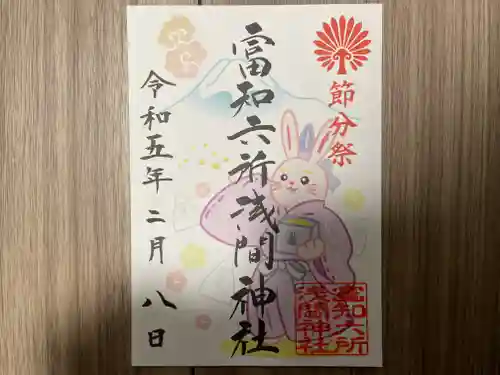 節分祭
富知六所浅間神社
令和五年二月八日
富知六所
浅間神社